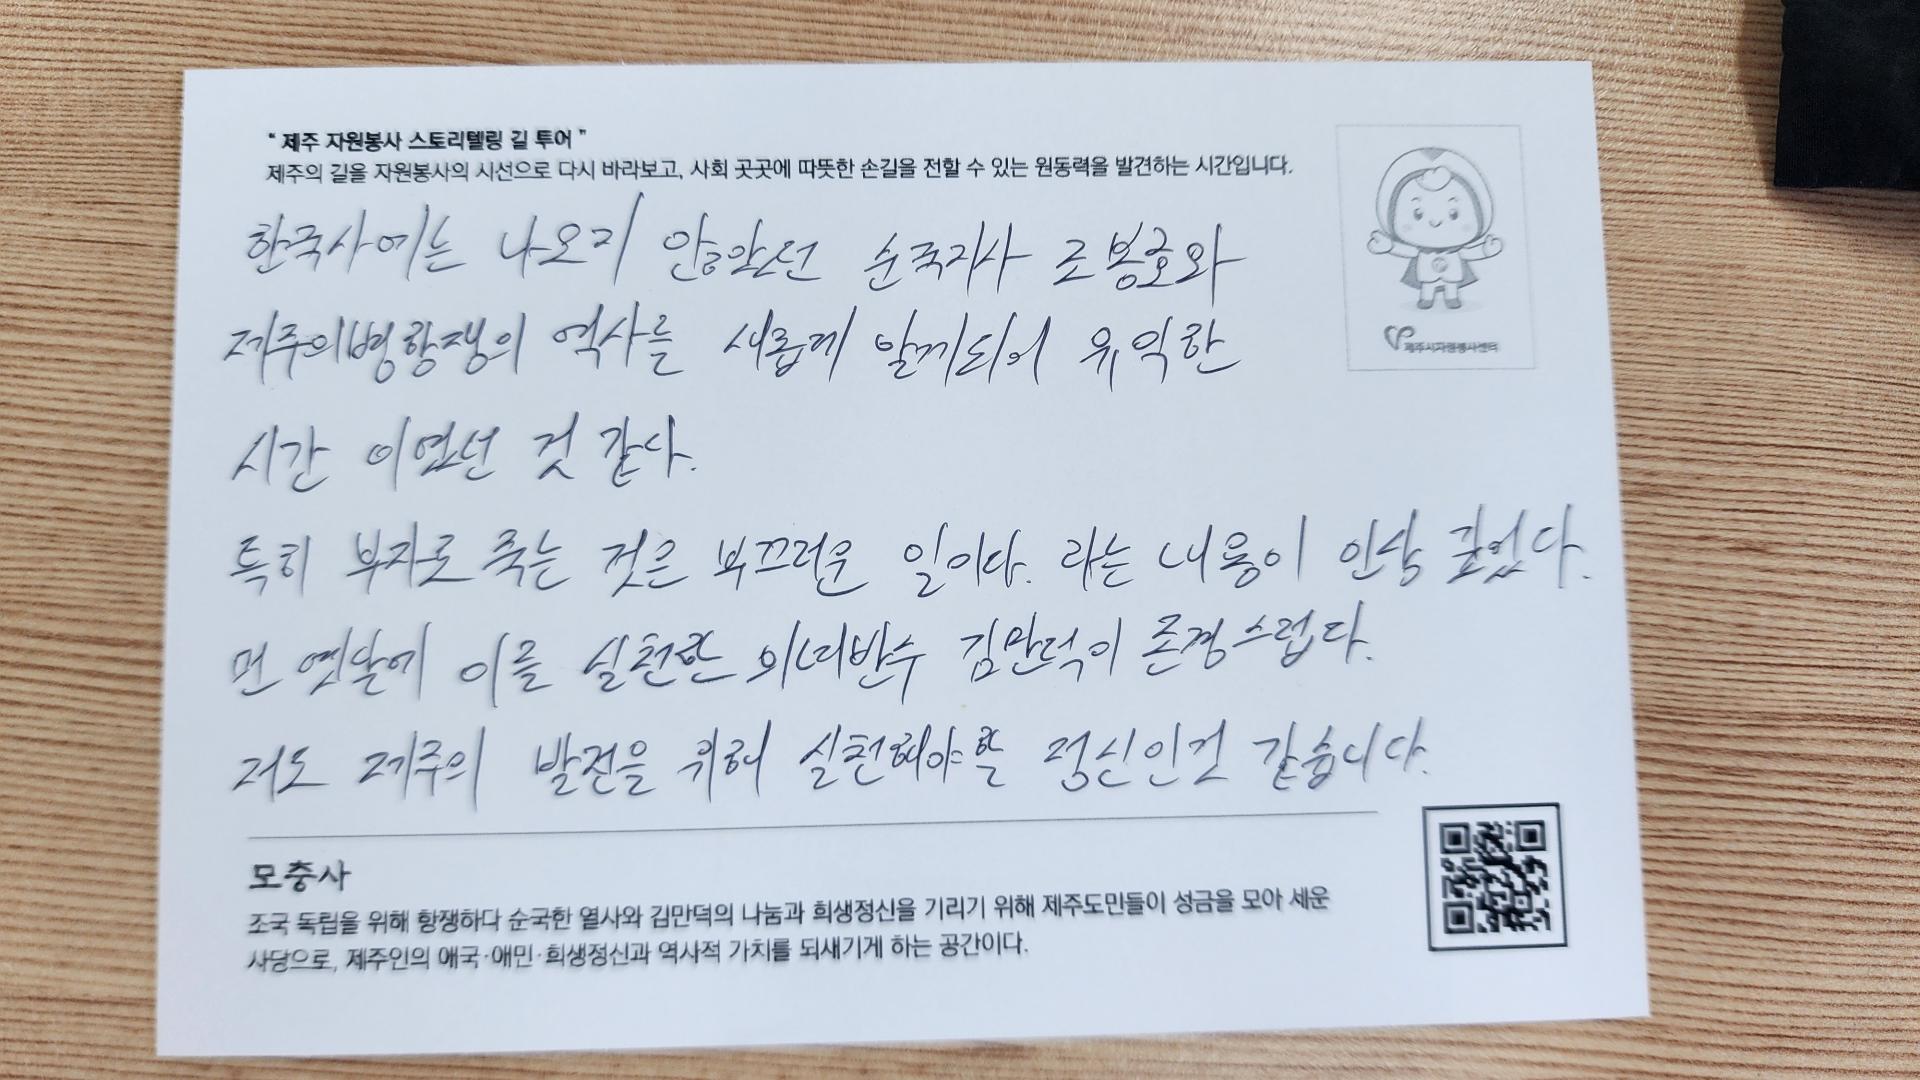 “ 제주 자원봉사 스토리텔링 길 투어 ”
제주의 길을 자원봉사의 시선으로 다시 바라보고, 사회 곳곳에 따뜻한 손길을 전할 수 있는 원동력을 발견하는 시간입니다.
제주시자원봉사센터
한국사에는 나오지 않았던 순국지사 조봉호와
제주의병항쟁의 역사를 새롭게 알게되어 유익한
시간 이었던 것 같다.
특히 부자로 죽는 것은 부끄러운 일이다. 라는 내용이 인상 깊었다.
먼 옛날에 이를 실천한 의녀반수 김만덕이 존경스럽다.
저도 제주의 발전을 위해 실천해야할 정신인것 같습니다.
모충사
조국 독립을 위해 항쟁하다 순국한 열사와 김만덕의 나눔과 희생정신을 기리기 위해 제주도민들이 성금을 모아 세운
사당으로, 제주인의 애국·애민·희생정신과 역사적 가치를 되새기게 하는 공간이다.